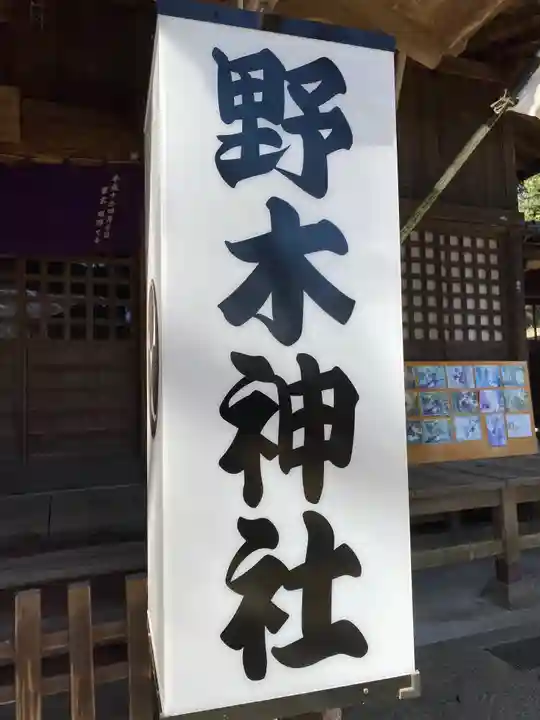 野木神社